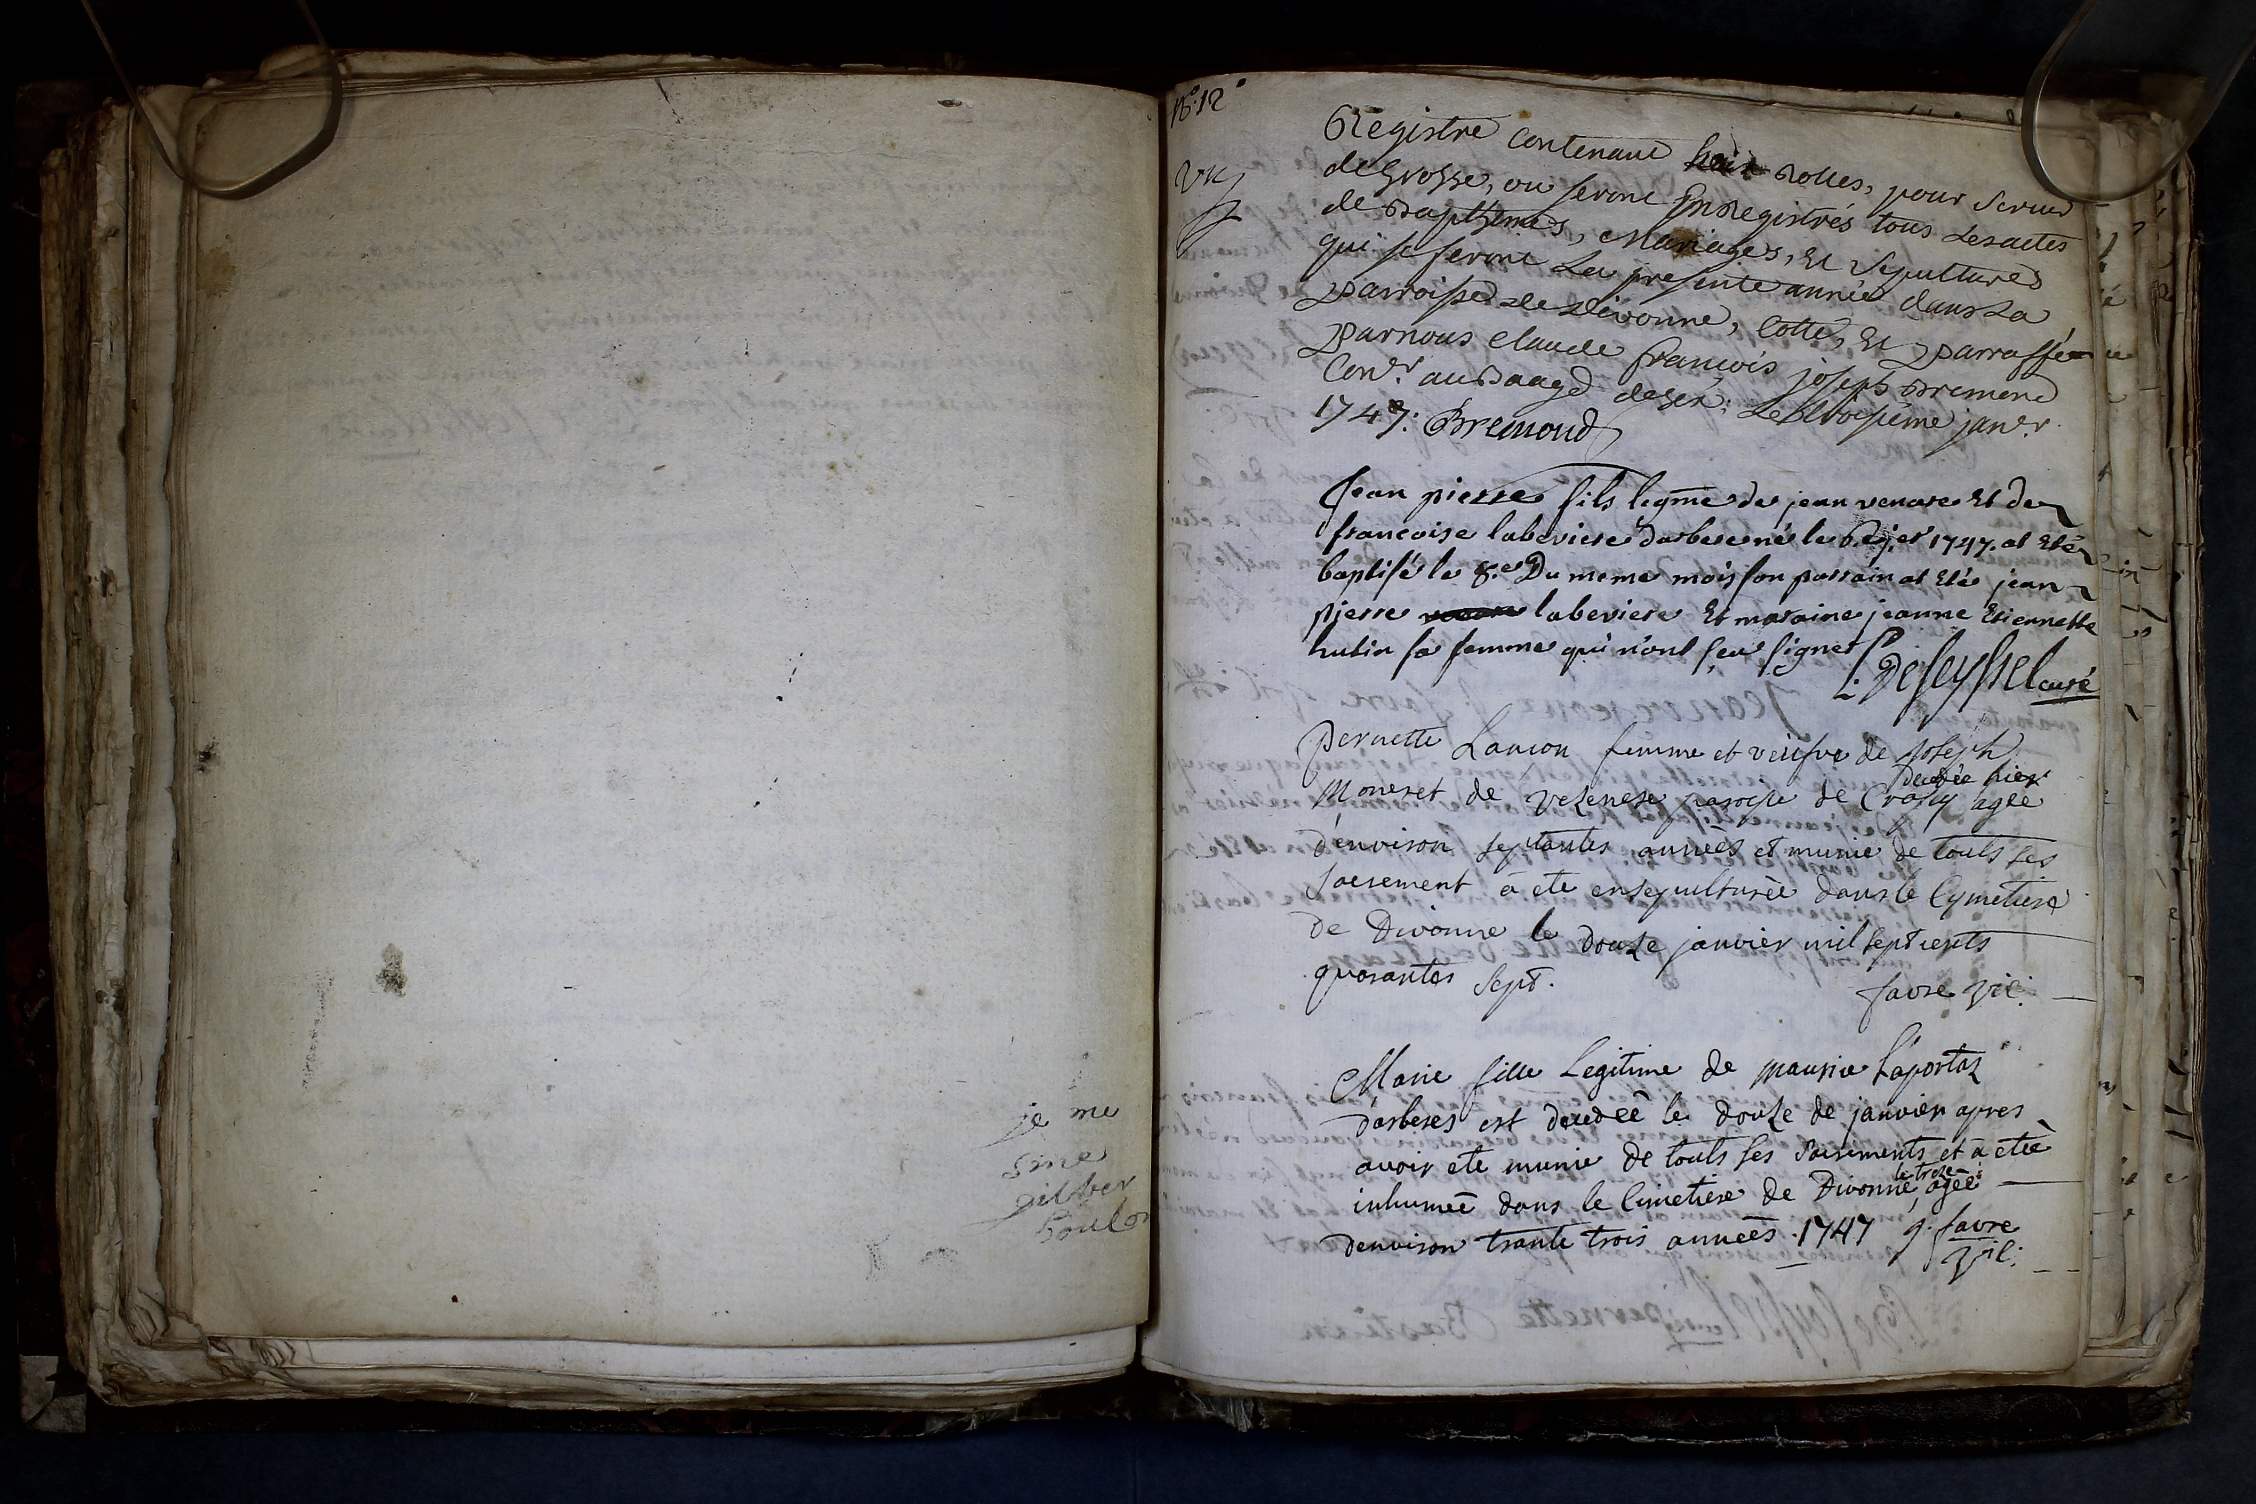 je me
sine
gilber
Boulo
No. 12
Registre contenant huit Rolles, pour Servir
de Grosse, ou seront Enregistrés tous Les actes
de Bapthemes, Mariages, Et Sepultures
qui se feront La presente année dans La
Parroisse de Divonne, Cotté, Et Parraffé
Par nous Claude françois joseph Bremond
Coner. au Baage de Gex; Le troisieme janer.
1747: Bremond
Jean pierre fils legme de jean venare Et de
francoise labeviere darbere né le 1747. at Eté
baptisé le 8.e Du meme mois son parrain at Eté jean
pierre labeviere Et maraine jeanne Etiennette
hutin sa femme qui n'ont sçu signer
L: Deseyssel curé
Pernette Lancon femme et veüfve de Joseph
Moneret de Vezenese paroisse de Crassy decedée hier agée
d'environ septantes années et munie de touts ses
sacrement a ete ensepulturée dans le Cymetiere
de Divonne le douze janvier mil sept cents
quarantes sept.
favre vic:
Marie fille Legitime de maurice Laportaz
d'arberes est decedeé le douze de janvier apres
avoir ete munie de touts ses sacrements et a eteé
inhumeé dans le Cimetiere de Divonne le treze ageé
denviron trante trois années. 1747 g. favre
vic: